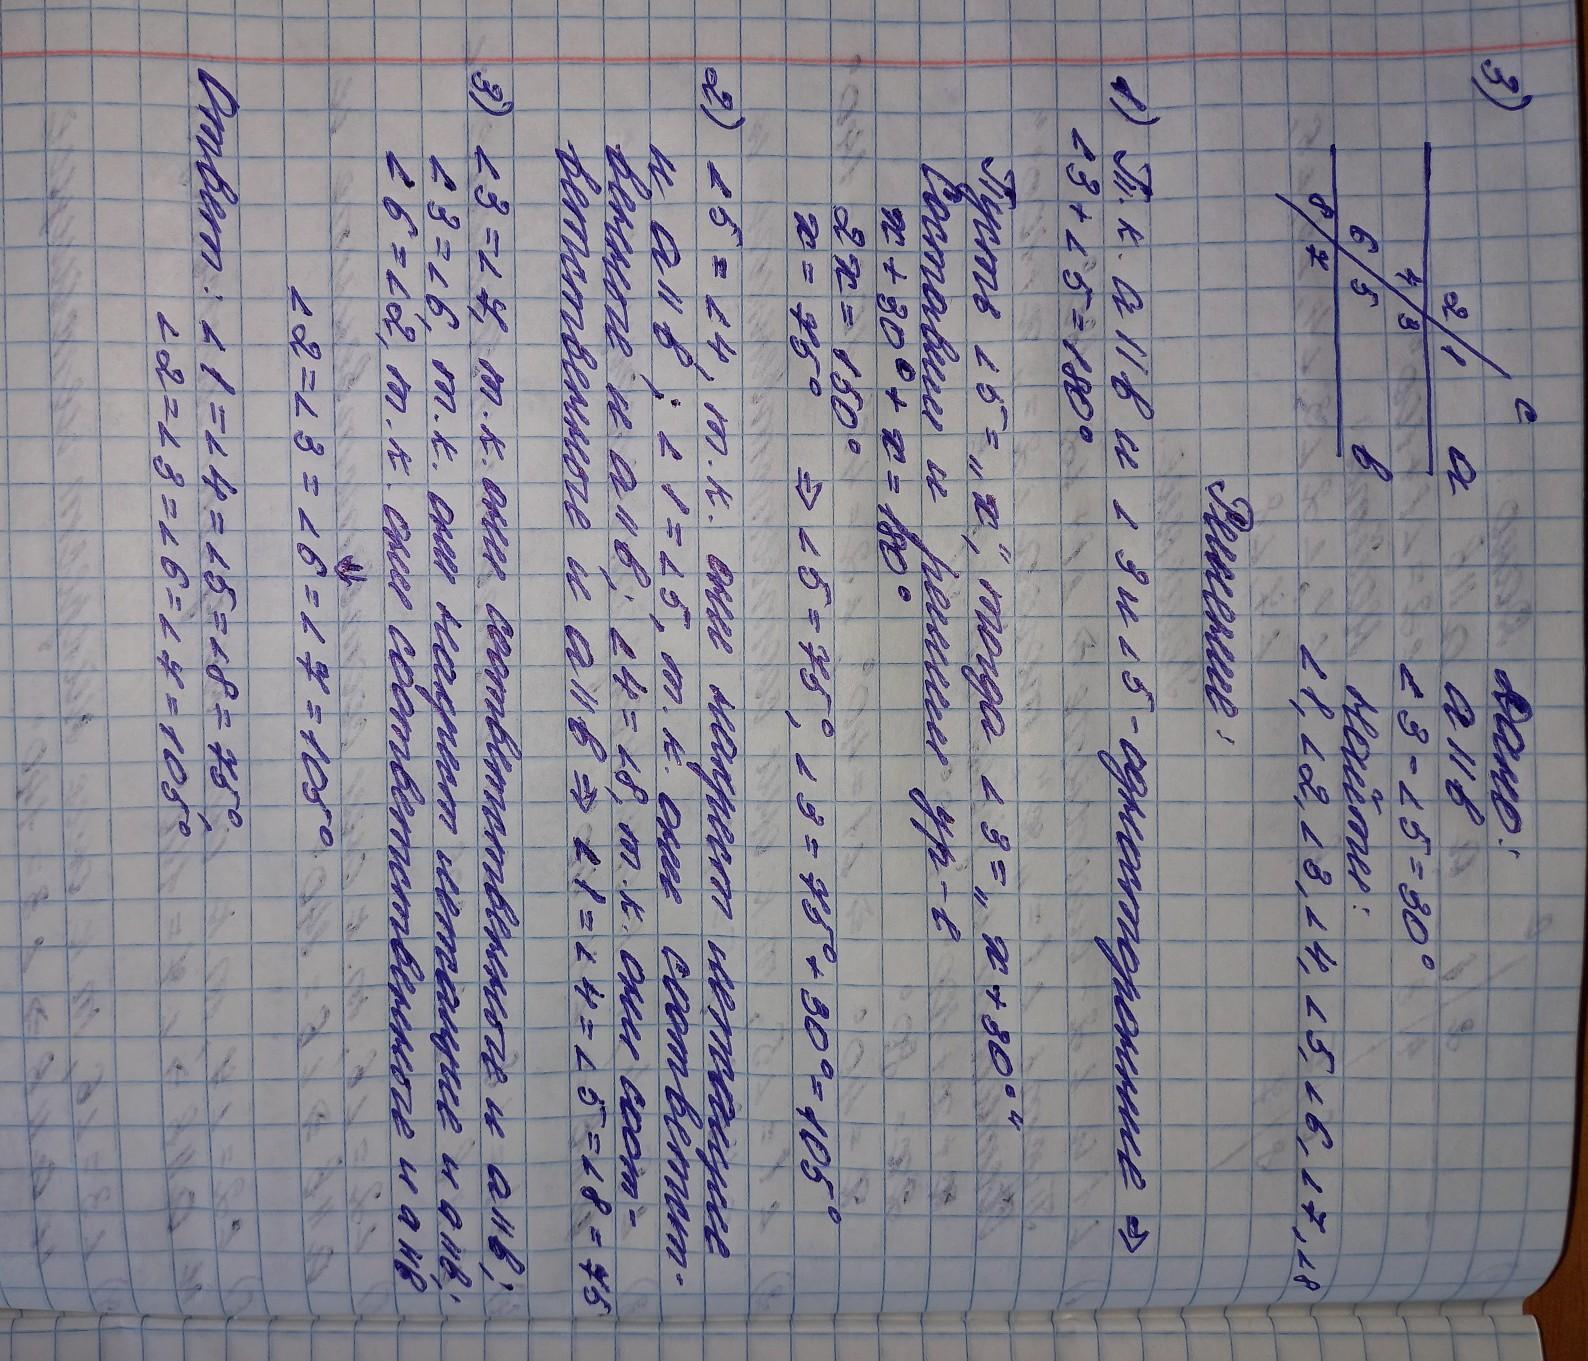 3)
c
2 1
a
4 3
6 5
b
8 7
Дано:
a || b
∠3 - ∠5 = 30°
Найти:
∠1, ∠2, ∠3, ∠4, ∠5, ∠6, ∠7, ∠8
Решение:
1) Т.к. a || b и ∠3 и ∠5 - односторонние ⇒
∠3 + ∠5 = 180°
Пусть ∠5 = „x“, тогда ∠3 = „x + 30°“
Составим и решим ур-е
x + 30° + x = 180°
2x = 150°
x = 75° ⇒ ∠5 = 75°, ∠3 = 75° + 30° = 105°
2) ∠5 = ∠4, т.к. они накрест лежащие
и a || b; ∠1 = ∠5, т.к. они соответст-
венные и a || b; ∠4 = ∠8, т.к. они соот-
ветственные и a || b ⇒ ∠1 = ∠4 = ∠5 = ∠8 = 75
3) ∠3 = ∠7, т.к. они соответственные и a || b;
∠3 = ∠6, т.к. они накрест лежащие и a || b;
∠6 = ∠2, т.к. они соответственные и a || b
⇓
∠2 = ∠3 = ∠6 = ∠7 = 105°
Ответ: ∠1 = ∠4 = ∠5 = ∠8 = 75°,
∠2 = ∠3 = ∠6 = ∠7 = 105°